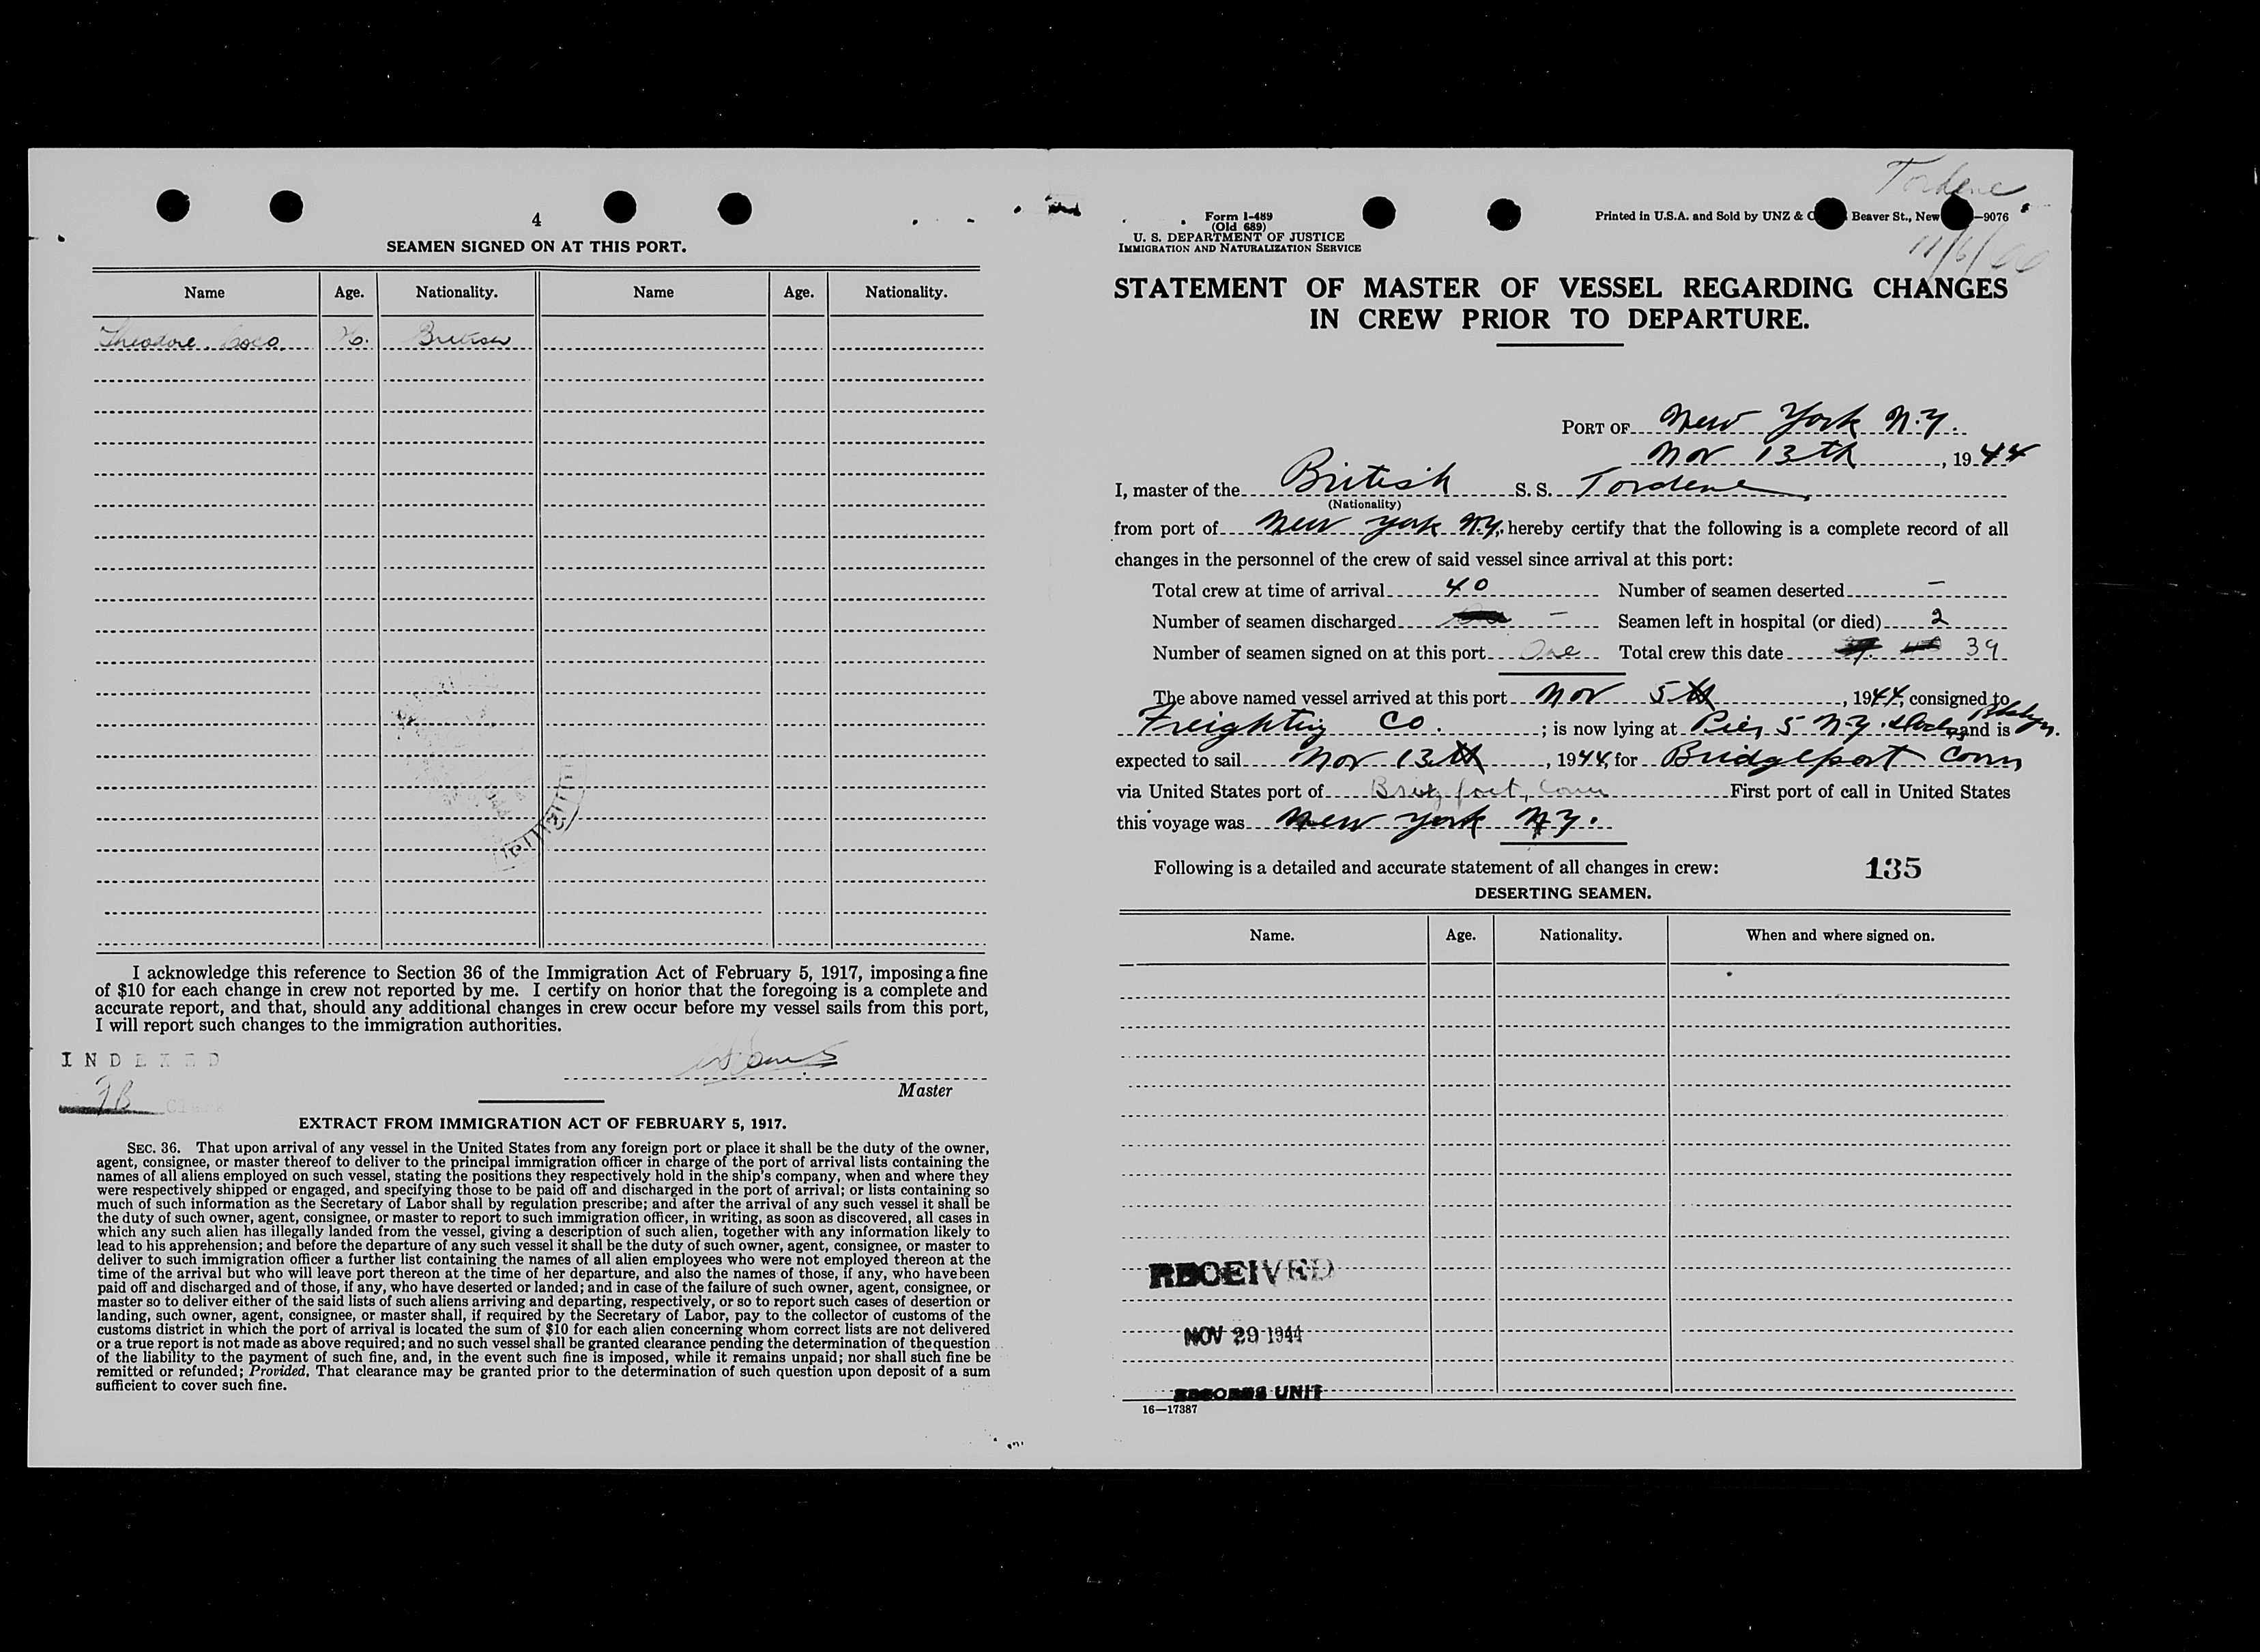 4
SEAMEN SIGNED ON AT THIS PORT.
Name Age. Nationality. Name Age. Nationality.
Theodore. Coco. British
I acknowledge this reference to Section 36 of the Immigration Act of February 5, 1917, imposing a fine
of $10 for each change in crew not reported by me. I certify on honor that the foregoing is a complete and
accurate report, and that, should any additional changes in crew occur before my vessel sails from this port,
I will report such changes to the immigration authorities.
INDEXED
Master
EXTRACT FROM IMMIGRATION ACT OF FEBRUARY 5, 1917.
SEC. 36. That upon arrival of any vessel in the United States from any foreign port or place it shall be the duty of the owner,
agent, consignee, or master thereof to deliver to the principal immigration officer in charge of the port of arrival lists containing the
names of all aliens employed on such vessel, stating the positions they respectively hold in the ship's company, when and where they
were respectively shipped or engaged, and specifying those to be paid off and discharged in the port of arrival; or lists containing so
much of such information as the Secretary of Labor shall by regulation prescribe; and after the arrival of any such vessel it shall be
the duty of such owner, agent, consignee, or master to report to such immigration officer, in writing, as soon as discovered, all cases in
which any such alien has illegally landed from the vessel, giving a description of such alien, together with any information likely to
lead to his apprehension; and before the departure of any such vessel it shall be the duty of such owner, agent, consignee, or master to
deliver to such immigration officer a further list containing the names of all alien employees who were not employed thereon at the
time of the arrival but who will leave port thereon at the time of her departure, and also the names of those, if any, who have been
paid off and discharged and of those, if any, who have deserted or landed; and in case of the failure of such owner, agent, consignee, or
master so to deliver either of the said lists of such aliens arriving and departing, respectively, or so to report such cases of desertion or
landing, such owner, agent, consignee, or master shall, if required by the Secretary of Labor, pay to the collector of customs of the
customs district in which the port of arrival is located the sum of $10 for each alien concerning whom correct lists are not delivered
or a true report is not made as above required; and no such vessel shall be granted clearance pending the determination of the question
of the liability to the payment of such fine, and, in the event such fine is imposed, while it remains unpaid; nor shall such fine be
remitted or refunded; Provided, That clearance may be granted prior to the determination of such question upon deposit of a sum
sufficient to cover such fine.
Tordene
Form I-489
(Old 689)
U. S. DEPARTMENT OF JUSTICE
IMMIGRATION AND NATURALIZATION SERVICE
Printed in U.S.A. and Sold by UNZ & C Beaver St., New —9076
STATEMENT OF MASTER OF VESSEL REGARDING CHANGES
IN CREW PRIOR TO DEPARTURE.
PORT OF New York N.Y.
Nov 13th, 1944
I, master of the British S. S. Tordene
(Nationality)
from port of New York N.Y. hereby certify that the following is a complete record of all
changes in the personnel of the crew of said vessel since arrival at this port:
Total crew at time of arrival 40 Number of seamen deserted —
Number of seamen discharged — Seamen left in hospital (or died) 2
Number of seamen signed on at this port One Total crew this date 39
The above named vessel arrived at this port Nov 5th, 1944, consigned to
Freighting Co. ; is now lying at Pier 5 N.Y. and is
expected to sail Nov 13th, 1944, for Bridgeport Conn
via United States port of Conn First port of call in United States
this voyage was New York N.Y.
Following is a detailed and accurate statement of all changes in crew: 135
DESERTING SEAMEN.
Name. Age. Nationality. When and where signed on.
RECEIVED
NOV 29 1944
RECORDS UNIT
16—17387